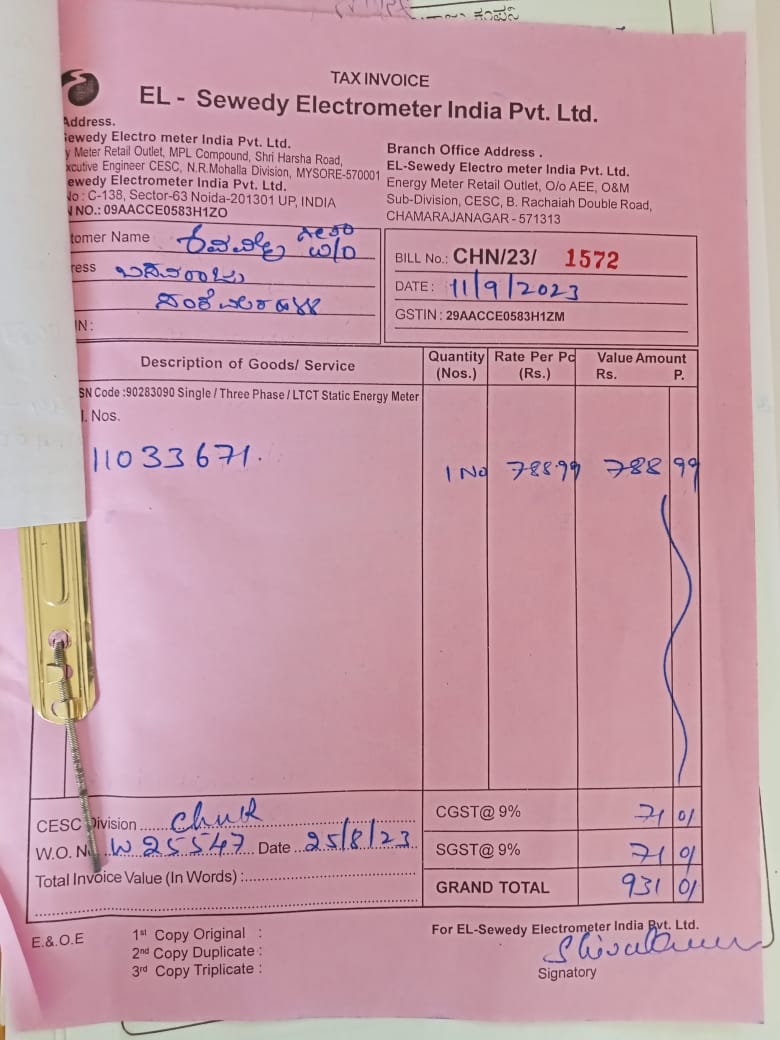 TAX INVOICE
EL - Sewedy Electrometer India Pvt. Ltd.
Address.
Sewedy Electro meter India Pvt. Ltd.
y Meter Retail Outlet, MPL Compound, Shri Harsha Road,
xcutive Engineer CESC, N.R.Mohalla Division, MYSORE-570001
ewedy Electrometer India Pvt. Ltd.
No : C-138, Sector-63 Noida-201301 UP, INDIA
NO.: 09AACCE0583H1ZO
Branch Office Address .
EL-Sewedy Electro meter India Pvt. Ltd.
Energy Meter Retail Outlet, O/o AEE, O&M
Sub-Division, CESC, B. Rachaiah Double Road,
CHAMARAJANAGAR - 571313
tomer Name
ress
IN :
BILL No.: CHN/23/ 1572
DATE : 11/9/2023
GSTIN : 29AACCE0583H1ZM
Description of Goods/ Service Quantity (Nos.) Rate Per Pc (Rs.) Value Amount Rs. P.
SN Code :90283090 Single / Three Phase / LTCT Static Energy Meter
l. Nos.
11033671. 1 No 788.99 788 99
CESC Division
CGST@ 9% 71 01
W.O. N W 25547 Date 25/8/23
SGST@ 9% 71 01
Total Invoice Value (In Words) :
GRAND TOTAL 931 01
E.&.O.E
1st Copy Original :
2nd Copy Duplicate :
3rd Copy Triplicate :
For EL-Sewedy Electrometer India Pvt. Ltd.
Signatory